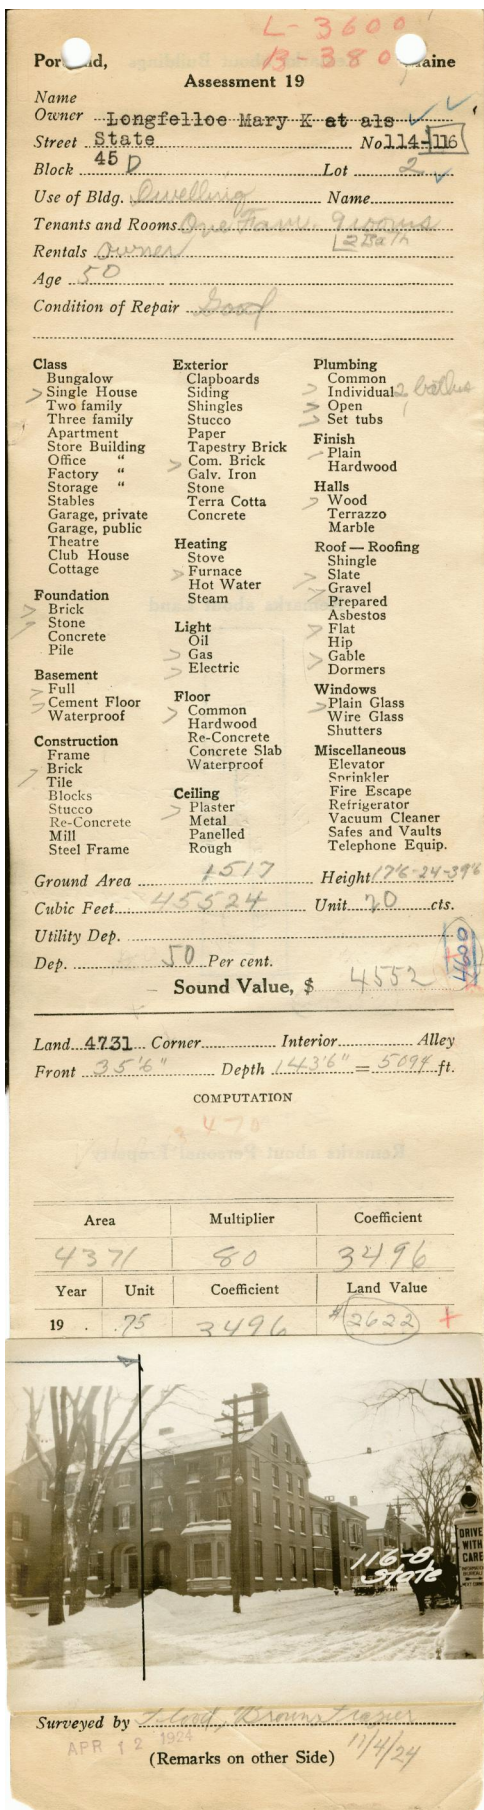 L-3600
B-380
Portland, Maine
Assessment 19
Name
Owner Longfelloe Mary K et als
Street State No 114-116
Block 45 D Lot 2
Use of Bldg. Dwelling Name
Tenants and Rooms One Fam. 9 rooms
2 Bath
Rentals Owner
Age 50
Condition of Repair Good
Class
Bungalow
Single House
Two family
Three family
Apartment
Store Building
Office "
Factory "
Storage "
Stables
Garage, private
Garage, public
Theatre
Club House
Cottage
Foundation
Brick
Stone
Concrete
Pile
Basement
Full
Cement Floor
Waterproof
Construction
Frame
Brick
Tile
Blocks
Stucco
Re-Concrete
Mill
Steel Frame
Exterior
Clapboards
Siding
Shingles
Stucco
Paper
Tapestry Brick
Com. Brick
Galv. Iron
Stone
Terra Cotta
Concrete
Heating
Stove
Furnace
Hot Water
Steam
Light
Oil
Gas
Electric
Floor
Common
Hardwood
Re-Concrete
Concrete Slab
Waterproof
Ceiling
Plaster
Metal
Panelled
Rough
Plumbing
Common
Individual 2 baths
Open
Set tubs
Finish
Plain
Hardwood
Halls
Wood
Terrazzo
Marble
Roof — Roofing
Shingle
Slate
Gravel
Prepared
Asbestos
Flat
Hip
Gable
Dormers
Windows
Plain Glass
Wire Glass
Shutters
Miscellaneous
Elevator
Sprinkler
Fire Escape
Refrigerator
Vacuum Cleaner
Safes and Vaults
Telephone Equip.
Ground Area 1517 Height 17'6-24-39'6
Cubic Feet 45524 Unit 20 cts.
Utility Dep.
Dep. 50 Per cent.
4600
Sound Value, $ 4552
Land 4731 Corner Interior Alley
Front 35'6" Depth 143'6" = 5094 ft.
COMPUTATION
470
Area Multiplier Coefficient
4371 80 3496
Year Unit Coefficient Land Value
19 . .75 3496 $2622 +
DRIVE
WITH
CARE
116-8
State
Surveyed by
APR 12 1924
11/4/24
(Remarks on other Side)